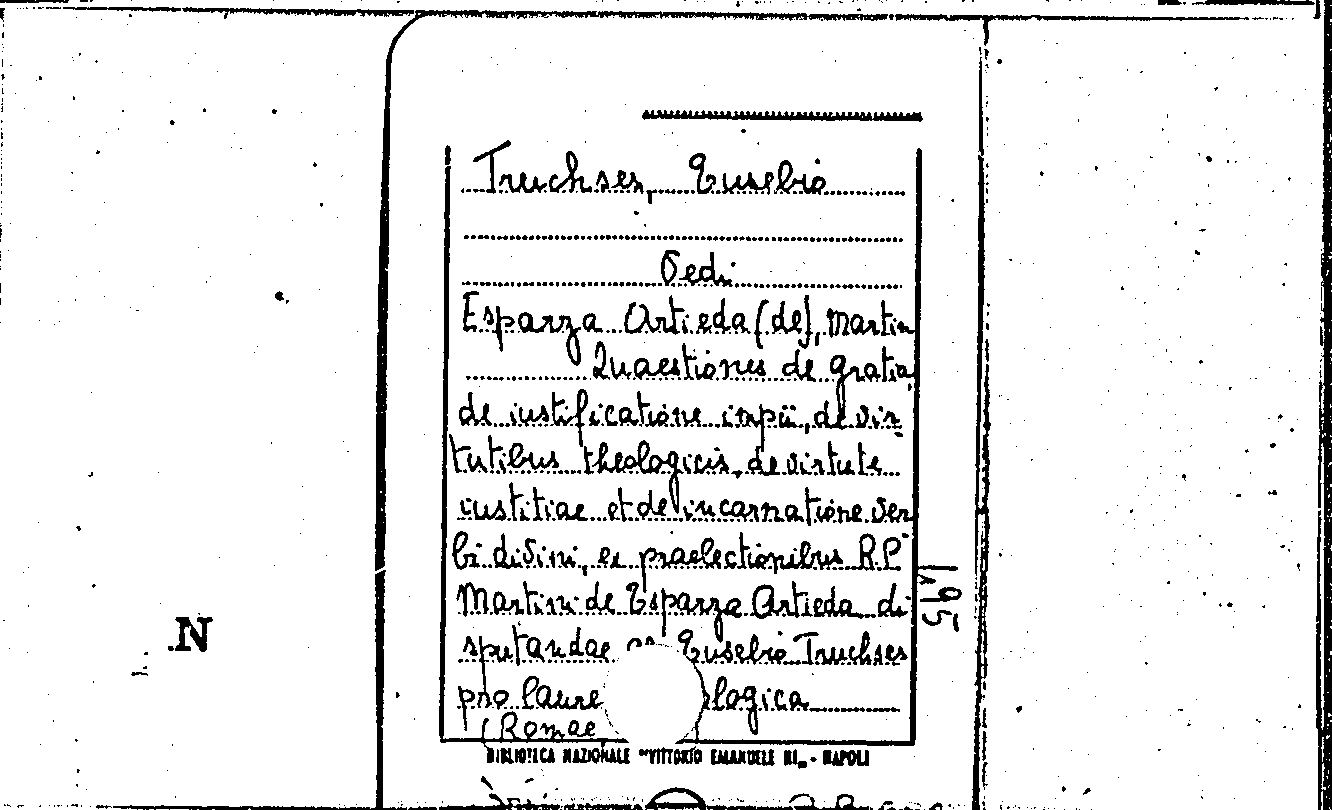 Truchses, Eusebio
Vedi
Esparza Artieda (de), Martin
Quaestiones de gratia,
de iustificatione impii, de vir
tutibus theologicis, de virtute
iustitiae et de incarnatione ver
bi divini, ex praelectionibus R.P.
Martini de Esparza Artieda di
sputandae Eusebio Truchses
pro laure logica
(Romae
195
N
BIBLIOTECA NAZIONALE "VITTORIO EMANUELE III" - NAPOLI